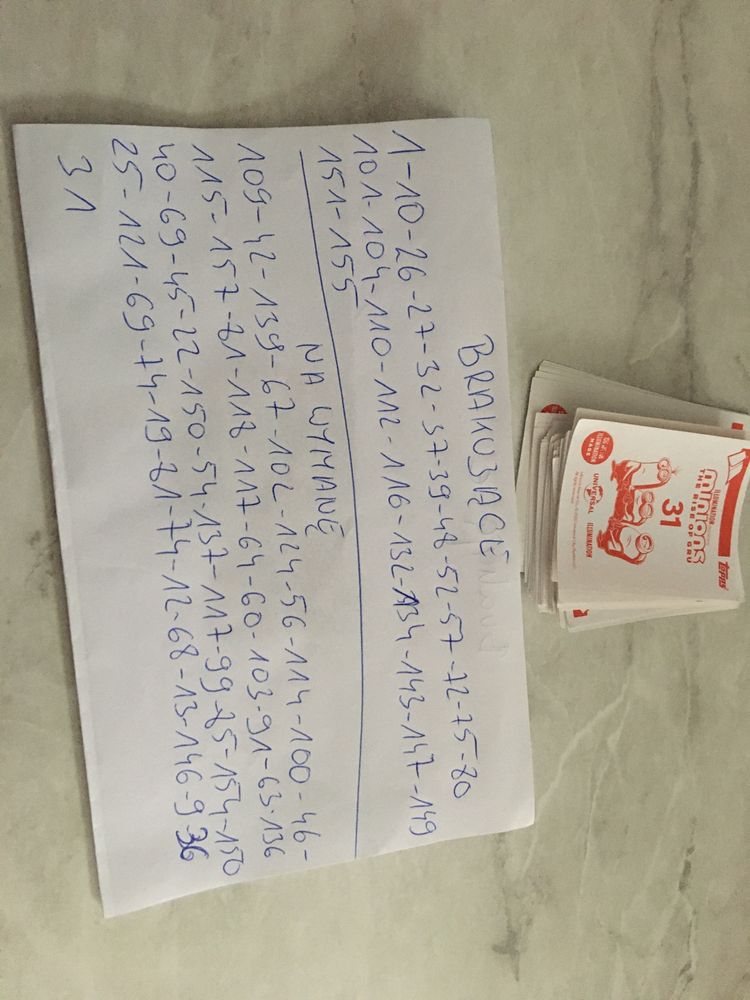 BRAKUJĄCE
1-10-26-27-32-37-39-48-52-57-72-75-80
101-104-110-112-116-132-134-143-147-149
151-155
NA WYMIANĘ
109-42-139-67-102-124-56-114-100-46-
115-157-81-118-117-64-60-103-91-63-136
40-69-45-22-150-54-137-117-99-85-154-150
25-121-69-74-19-81-74-12-68-13-146-9-36
31
TOPPS
ILLUMINATION
minions
THE RISE OF GRU
31
UNIVERSAL
ILLUMINATION